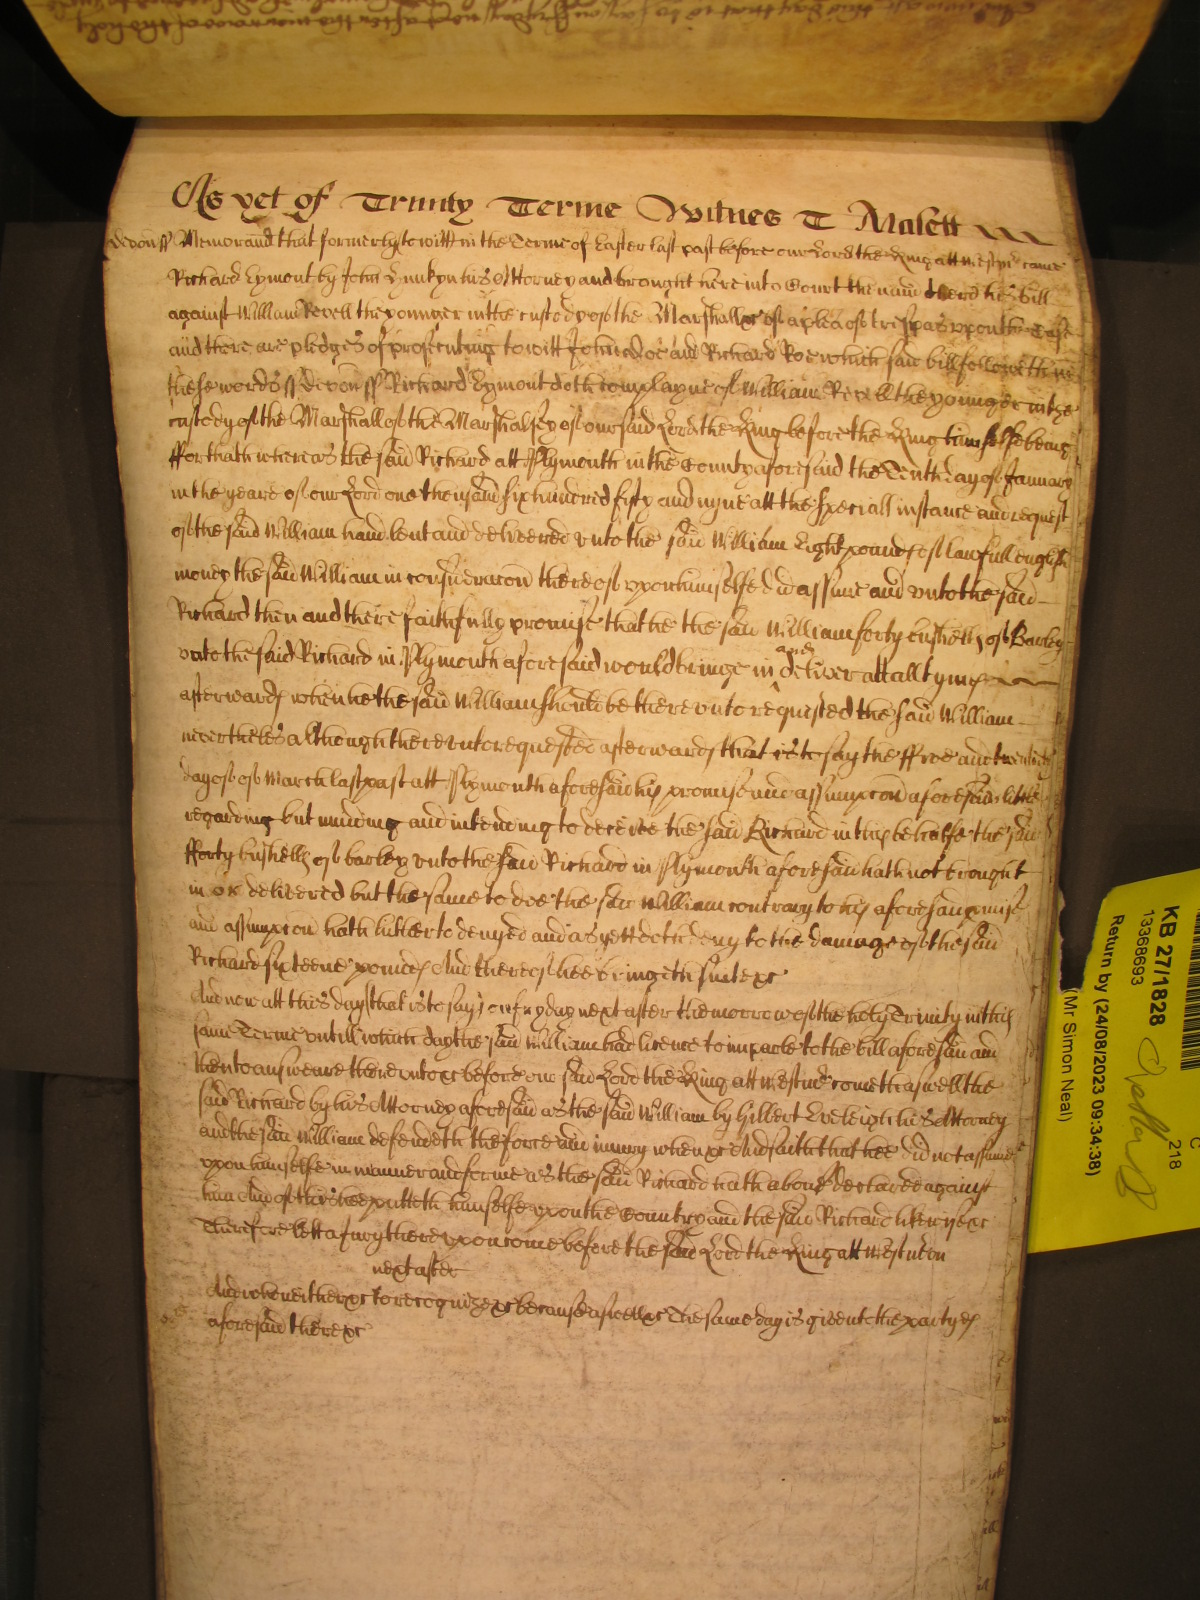 As yet of Trinity Terme Witnes T Malett
Devon ss Memorand that formerly to witt in the Terme of Easter last past before our Lord the King att Westmr came
Richard Eymont by John his Attorney and brought here into Court then and there his bill
against William Revell the younger in the custody of the Marshall &c of a plea of trespas upon the Case
and there are pledges of prosecuting to witt John Doe and Richard Roe which said bill followeth in
these words ss Devon ss Richard Eymont doth complayne of William Revell the younger in the
custody of the Marshall of the Marshalsey of our said Lord the King before the King himselfe being
ffor that whereas the said Richard att Plymouth in the County aforesaid the Tenth day of January
in the yeare of our Lord one thousand six hundred fifty and nyne att the speciall instance and request
of the said William hand lent and delivered unto the said William Eight pounds of lawfull english
money the said William in consideracon thereof upon himselfe did assume and unto the said
Richard then and there faithfully promise that he the said William forty bushells of Barley
unto the said Richard in Plymouth aforesaid would bringe in and deliver att all tymes
afterwards when he the said William should be thereunto requested the said William
neverthelesse although thereunto requested afterwards that is to say the ffive and twentieth
day of March last past att Plymouth aforesaid his promise and assumpcon aforesaid little
regarding but minding and intending to deceive the said Richard in this behalfe the said
fforty bushells of barley unto the said Richard in Plymouth aforesaid hath not brought
in or delivered but the same to doe the said William contrary to his aforesaid promise
and assumpcon hath hitherto denyed and as yett doth deny to the damage of the said
Richard sixteene pounds And thereof hee bringeth suite &c
And now att this day (that is to say) on fryday next after the morrow of the holy Trinity in this
same Terme untill which day the said William had licence to imparle to the bill aforesaid and
then to answeare thereunto &c before our said Lord the King att Westmr cometh aswell the
said Richard by his Attorney aforesaid as the said William by Gilbert Eveleigh his Attorney
and the said William defendeth the force and iniury when &c And saith that hee did not assume
upon himselfe in manner and forme as the said Richard hath above declared against
him And of this hee putteth himselfe upon the Country and the said Richard likewyse &c
Therefore lett a jury thereupon come before the said Lord the King att Westm on
next after
And who neither &c to recognize &c because aswell &c The same day is given to the partyes
aforesaid there &c
KB 27/1828
13368693
Return by (24/08/2023 09:34:38)
(Mr Simon Neal)
218
C